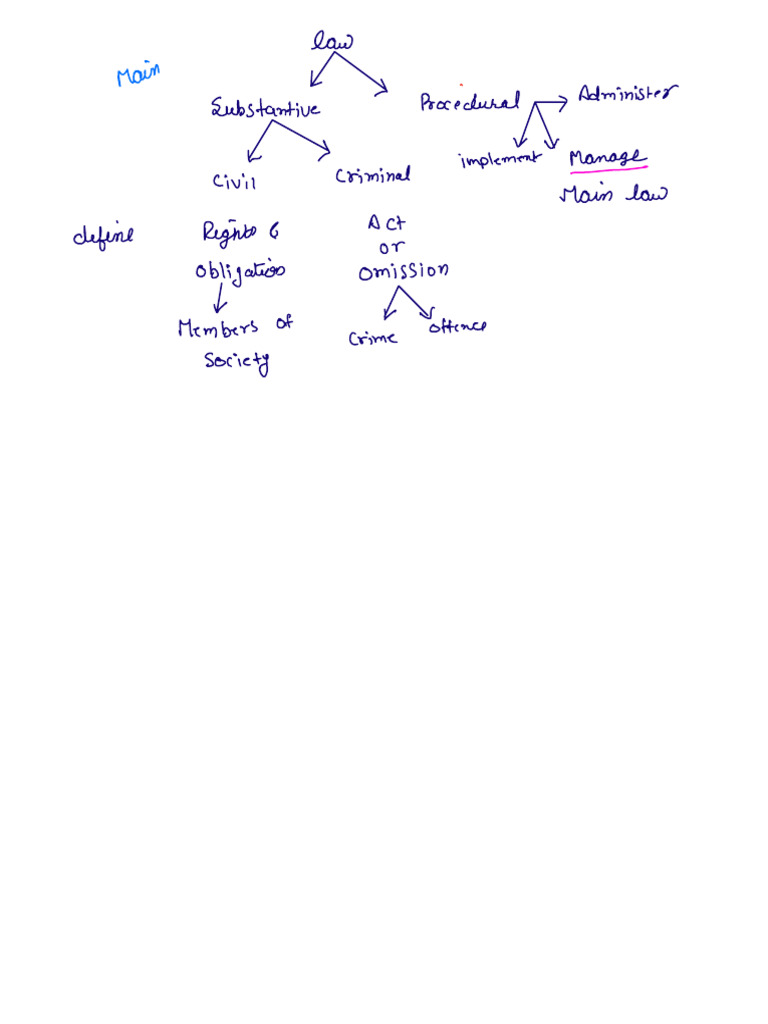 law
Main
Substantive
Procedural
Administer
implement
Manage
Main law
Civil
Criminal
define
Rights &
Obligation
Members of
Society
Act
or
Omission
Crime
Offence